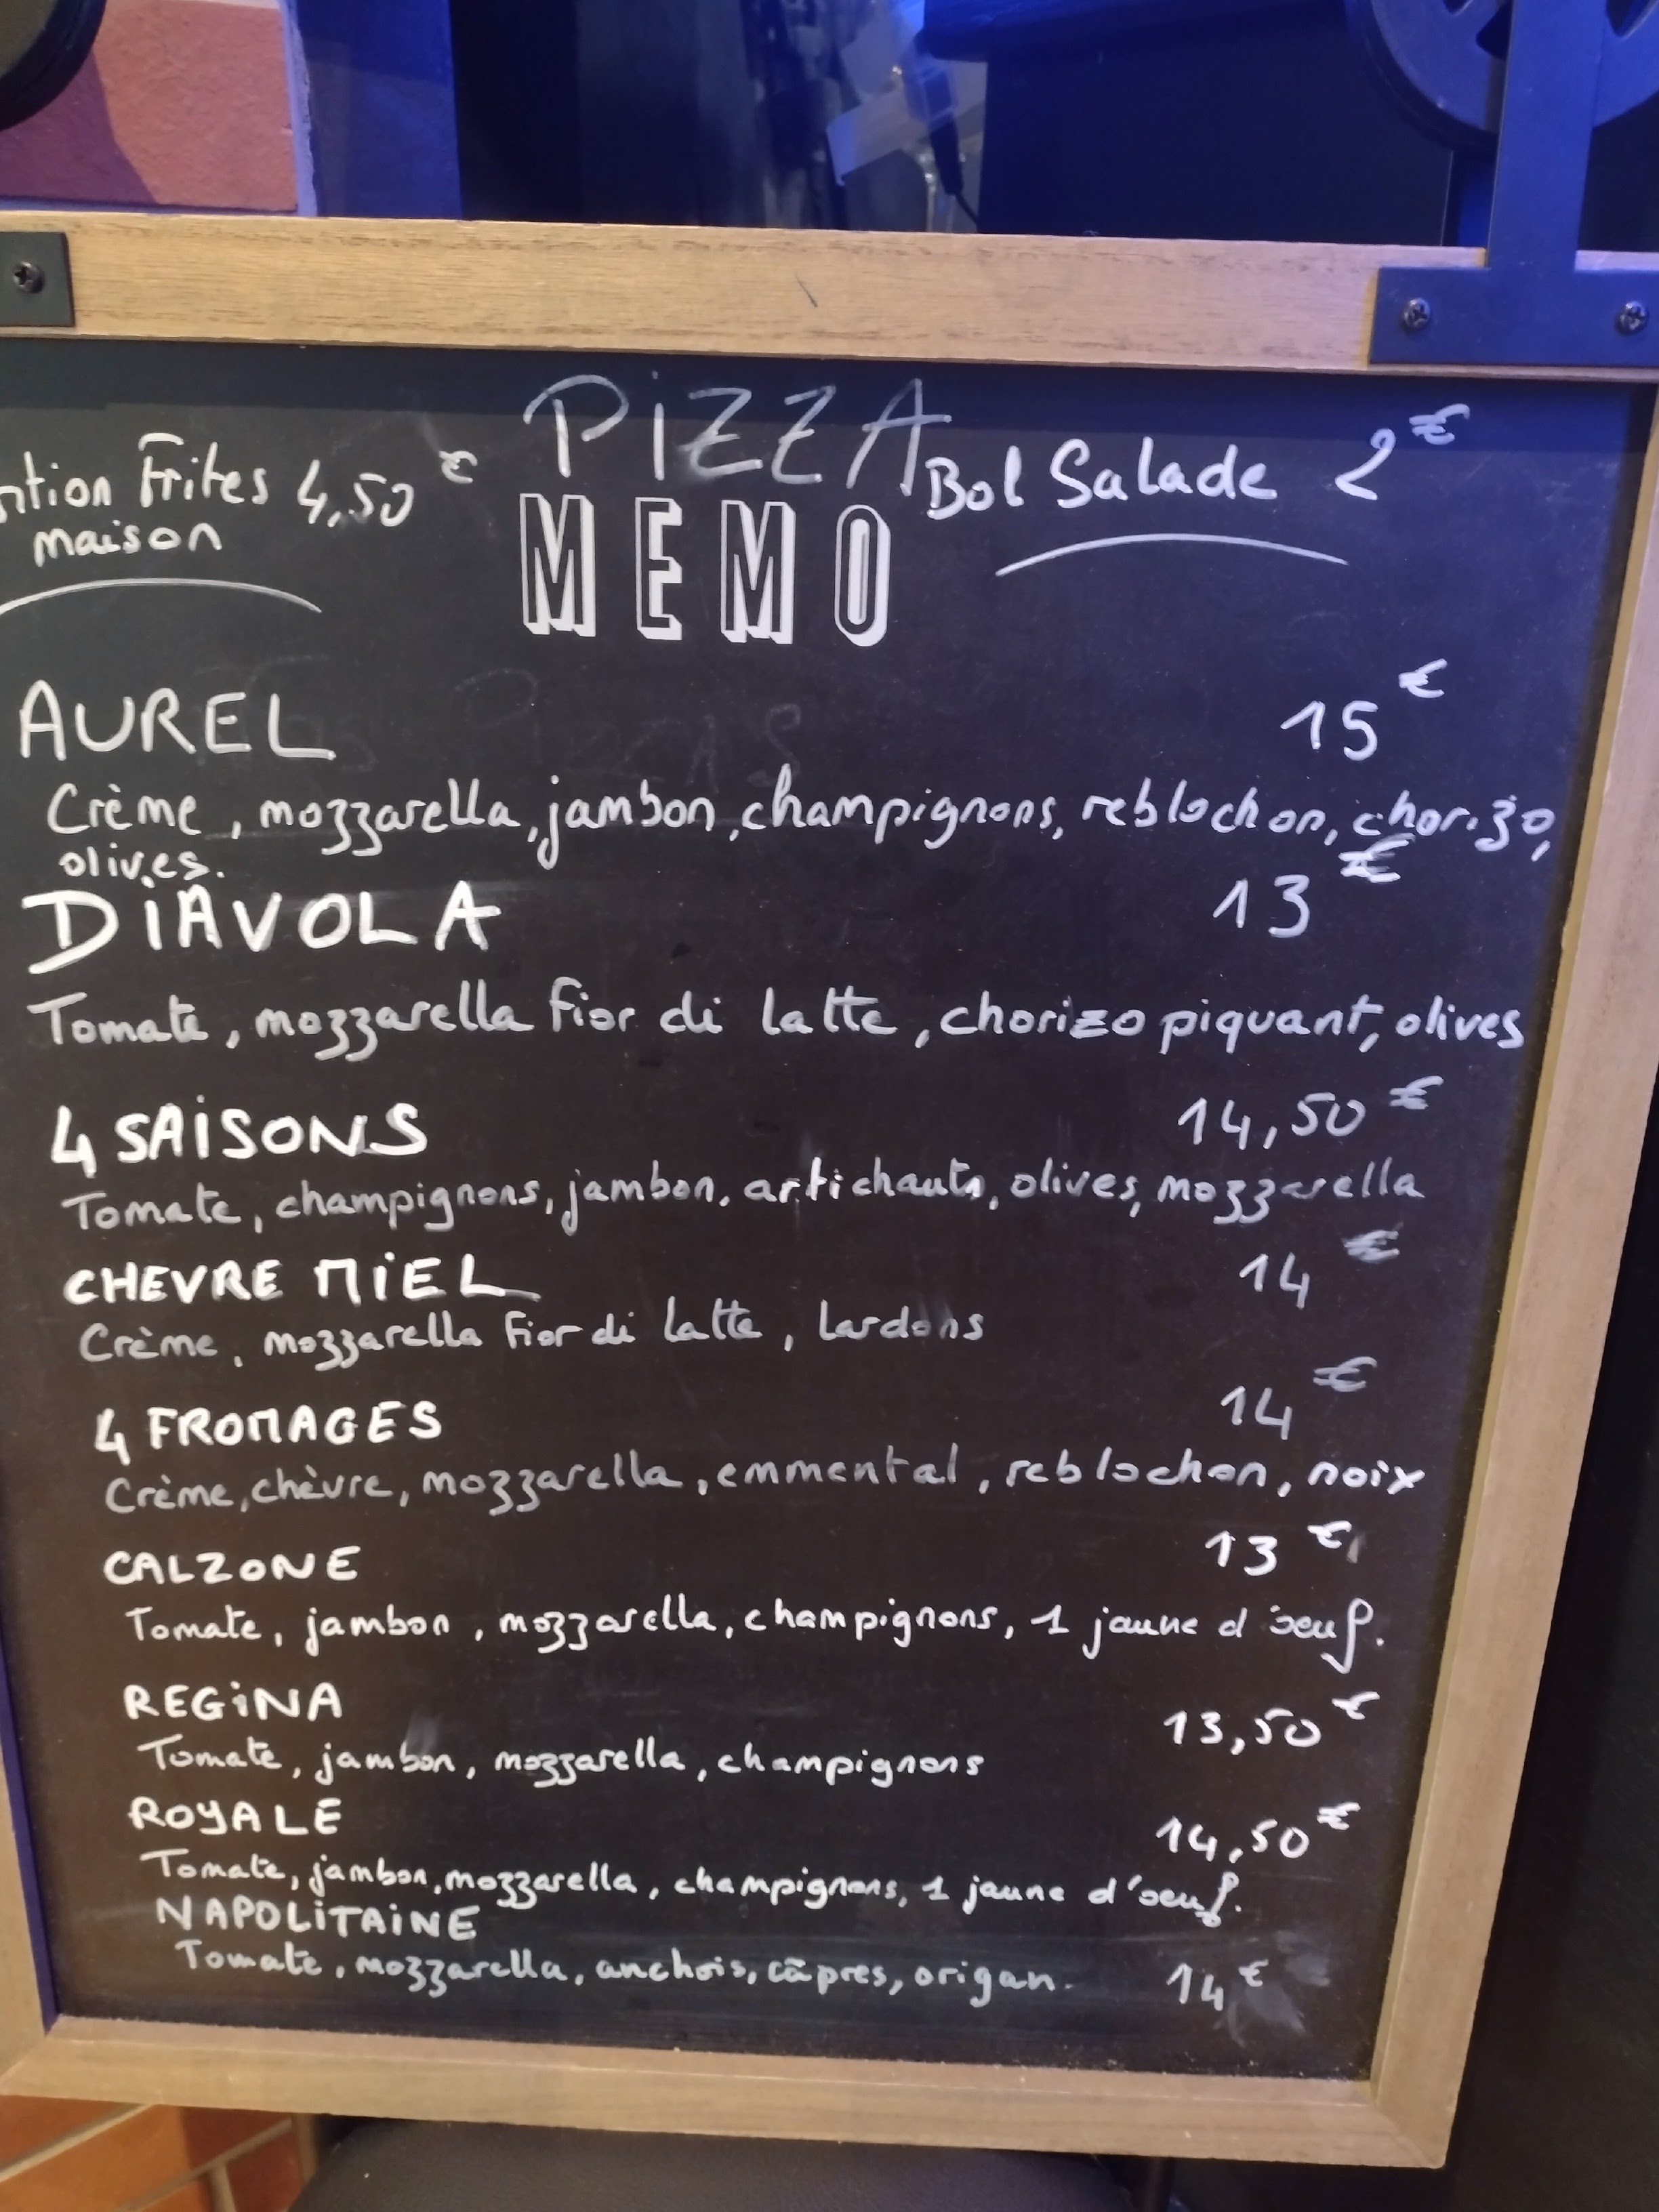 PiZZA
ntion Frites 4,50 €
maison
Bol Salade 2 €
MEMO
AUREL 15 €
Crème, mozzarella, jambon, champignons, reblochon, chorizo,
olives.
DiAVOLA 13 €
Tomate, mozzarella fior di latte, chorizo piquant, olives
4 SAiSONS 14,50 €
Tomate, champignons, jambon, artichauts, olives, mozzarella
CHEVRE MiEL 14 €
Crème, mozzarella fior di latte, lardons
4 FROMAGES 14 €
Crème, chèvre, mozzarella, emmental, reblochon, noix
CALZONE 13 €
Tomate, jambon, mozzarella, champignons, 1 jaune d'oeuf.
REGiNA 13,50 €
Tomate, jambon, mozzarella, champignons
ROYALE 14,50 €
Tomate, jambon, mozzarella, champignons, 1 jaune d'oeuf.
NAPOLiTAiNE
Tomate, mozzarella, anchois, câpres, origan. 14 €